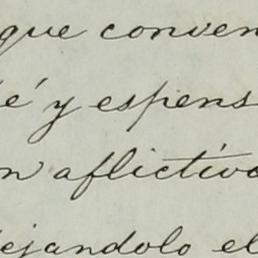 que conven
é y espens
n aflictivo
ejandolo el